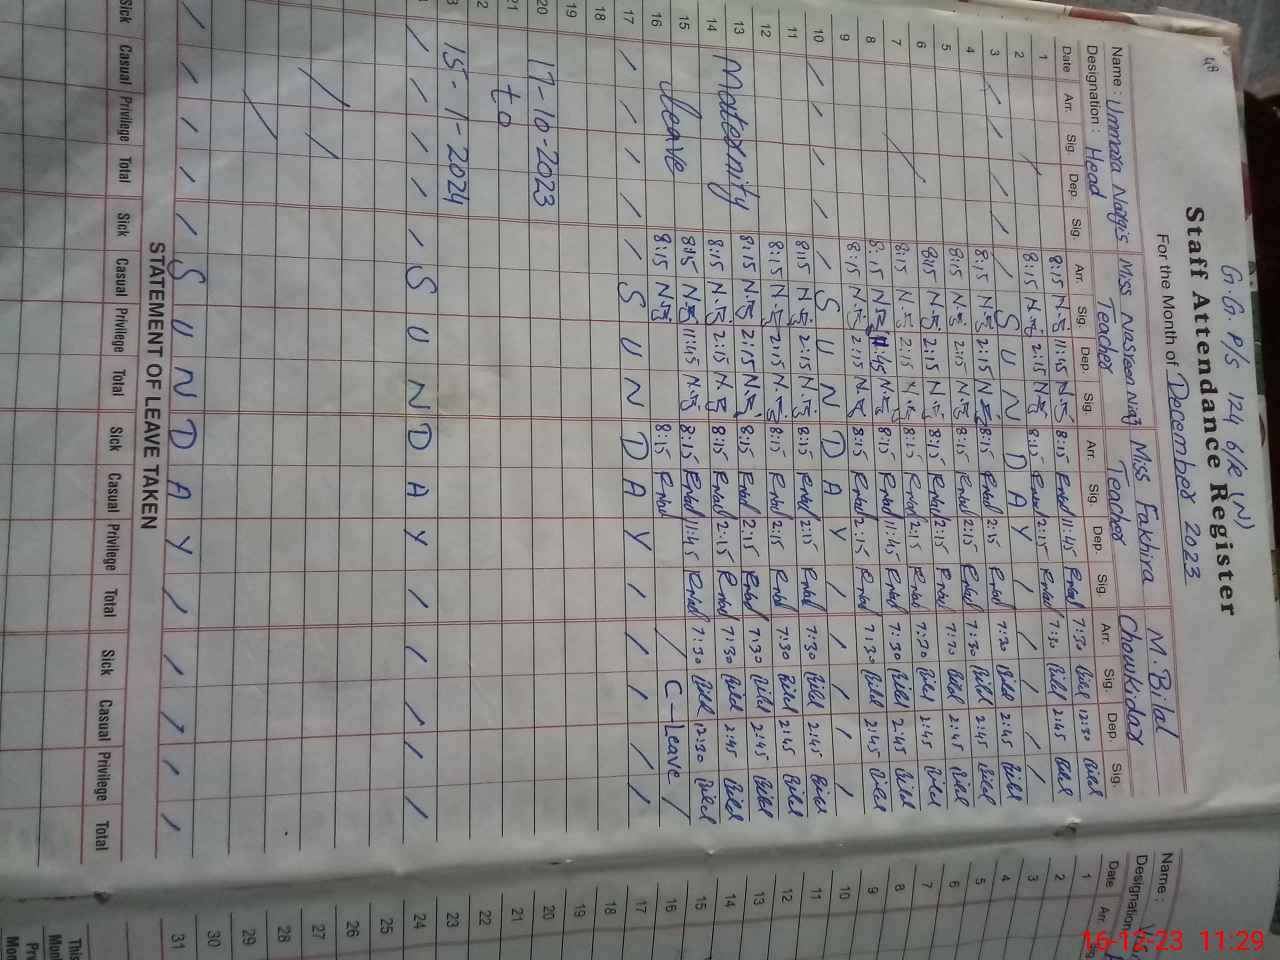 48
G.G. P/S 124 6/R (N)
Staff Attendance Register
For the Month of December 2023
Name : Ummara Nargis Miss Nasreen Niaz Miss Fakhira M. Bilal
Designation : Head Teacher Teacher Chowkidar
Date Arr. Sig. Dep Sig. Arr. Sig. Dep. Sig. Arr. Sig. Dep. Sig. Arr. Sig. Dep. Sig.
1 8:15 11:45 8:15 11:45 7:30 Bilal 12:30 Bilal
2 8:15 2:15 8:15 2:15 7:30 Bilal 2:45 Bilal
3 SUNDAY
4 8:15 2:15 8:15 2:15 7:30 Bilal 2:45 Bilal
5 8:15 2:15 8:15 2:15 7:30 Bilal 2:45 Bilal
6 8:15 2:15 8:15 2:15 7:30 Bilal 2:45 Bilal
7 8:15 2:15 8:15 2:15 7:30 Bilal 2:45 Bilal
8 8:15 11:45 8:15 11:45 7:30 Bilal 2:45 Bilal
9 8:15 2:15 8:15 2:15 7:30 Bilal 2:45 Bilal
10 SUNDAY
11 8:15 2:15 8:15 2:15 7:30 Bilal 2:45 Bilal
12 8:15 2:15 8:15 2:15 7:30 Bilal 2:45 Bilal
13 Maternity 8:15 2:15 8:15 2:15 7:30 Bilal 2:45 Bilal
14 8:15 2:15 8:15 2:15 7:30 Bilal 2:45 Bilal
15 Leave 8:15 11:45 8:15 11:45 7:30 Bilal 12:30 Bilal
16 8:15 8:15 C-Leave
17 SUNDAY
18
19
20 17-10-2023
21 to
2
3 15-1-2024
SUNDAY
SUNDAY
STATEMENT OF LEAVE TAKEN
Sick Casual Privilege Total Sick Casual Privilege Total Sick Casual Privilege Total Sick Casual Privilege Total
Name :
Designation
Date Arr.
1
2
3
4
5
6
7
8
9
10
11
12
13
14
15
16
17
18
19
20
21
22
23
24
25
26
27
28
29
30
31
This
16-12-23 11:29